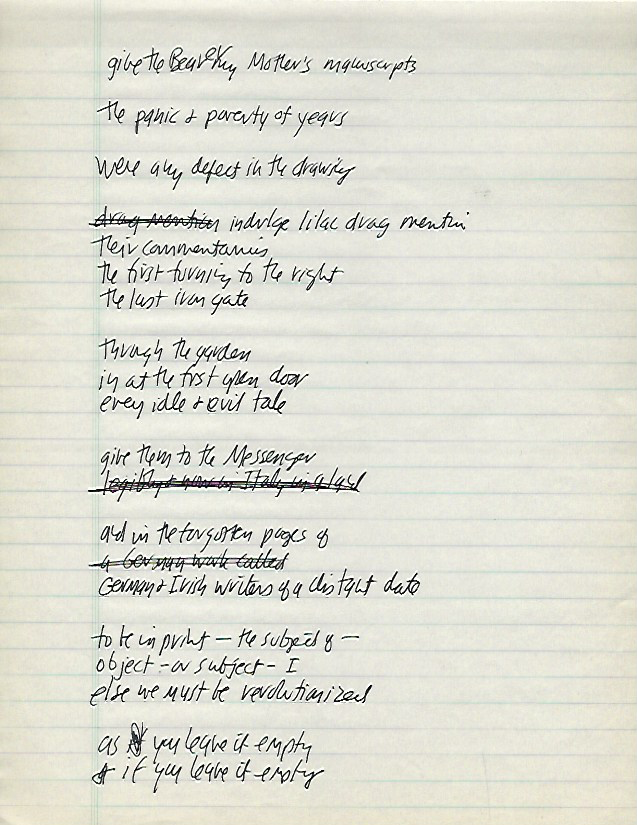 give the Bearer my Mother's manuscripts
the panic & poverty of years
Were any defect in the drawing
drag mention indulge lilac drag mention
their commentaries
the first turning to the right
the last iron gate
through the garden
in at the first open door
every idle & evil tale
give them to the Messenger
and in the forgotten pages of
a German work called
German & Irish writers of a distant date
to be in print — the subject of —
object - or subject - I
else we must be revolutionized
as you leave it empty
if you leave it empty